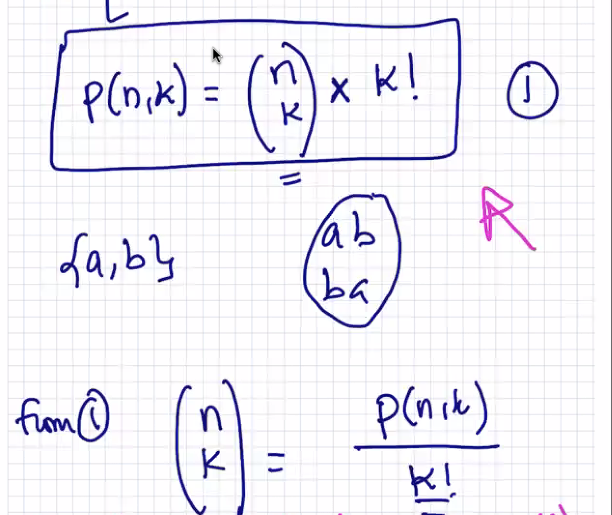 P(n,k) = (n k) × k! ①
=
{a,b} ab
ba
from ① (n k) = P(n,k) / k!